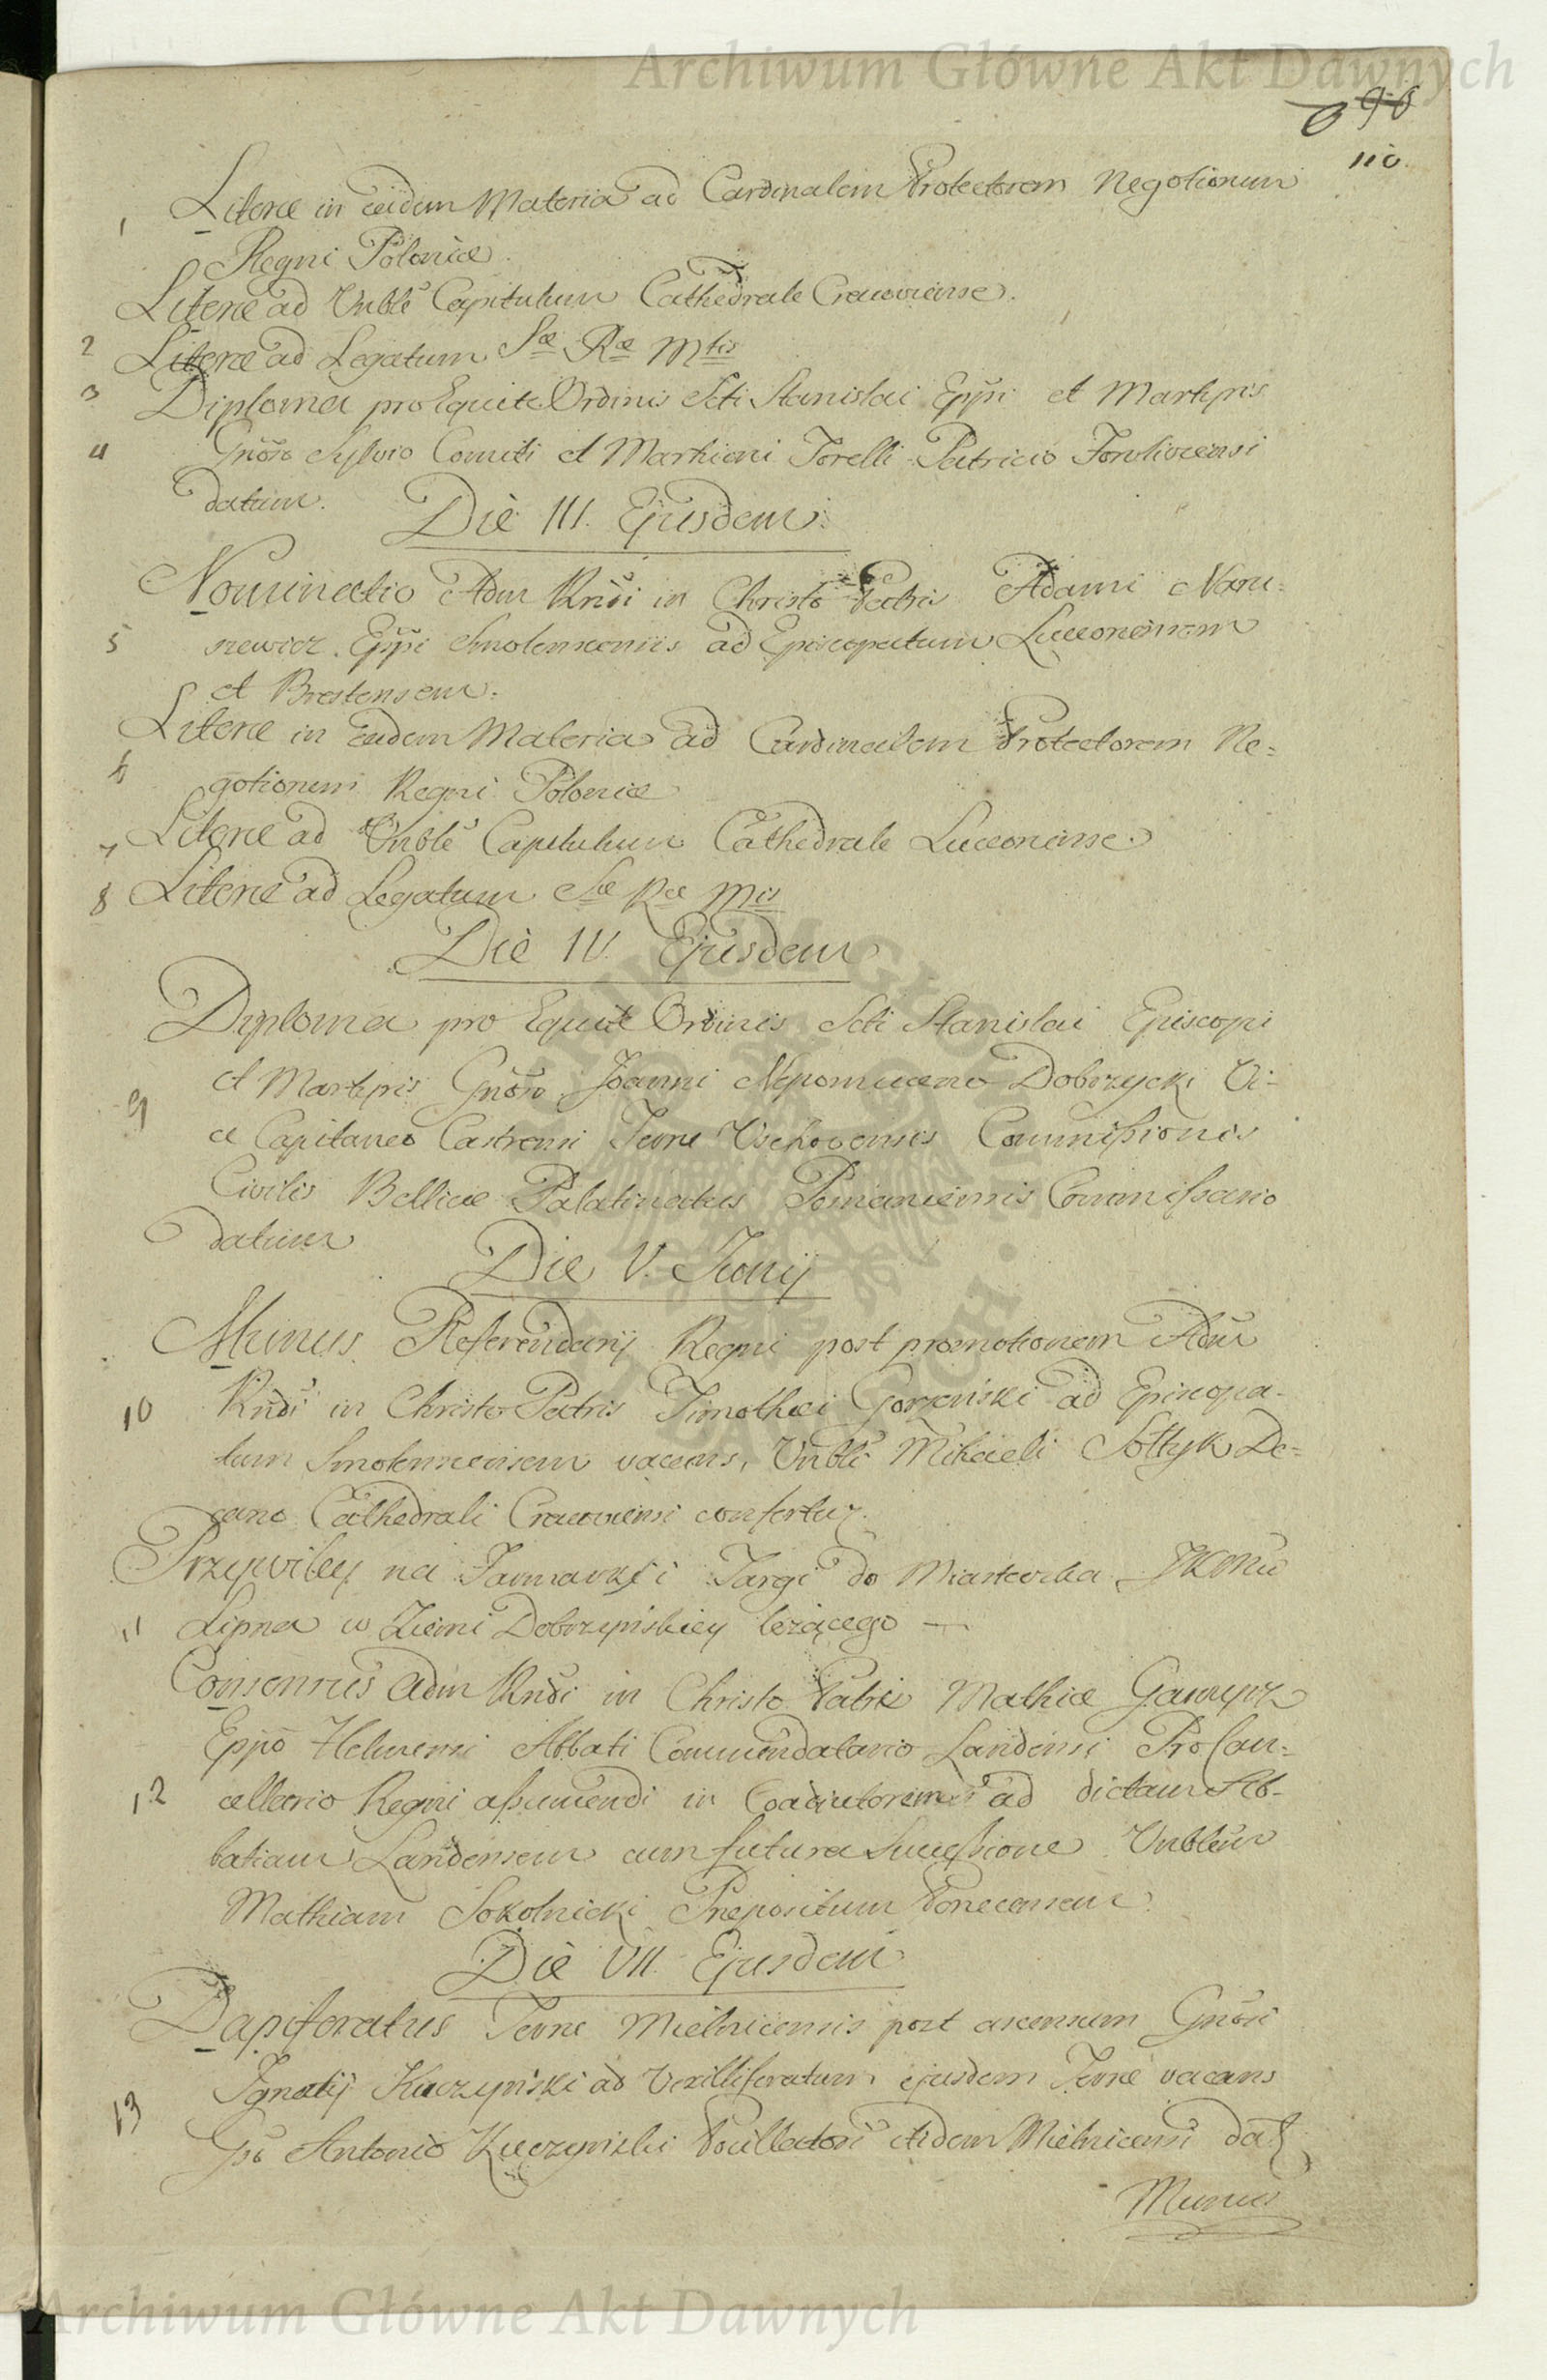 Archiwum Główne Akt Dawnych
110.
1 Literæ in eâdem Materia ad Cardinalem Protectorem Negotiorum
Regni Poloniæ.
Literæ ad Vnble Capitulum Cathedrale Cracoviense.
2 Literæ ad Legatum Sæ Ræ Mtis
3 Diploma pro Equite Ordinis Scti Stanislai Eppi et Martyris
4 Gnoso Sylvio Comiti et Marchioni Torelli Patricio Foroliviensi
datum. Die III. Ejusdem.
Nominatio Adm Rndi in Christo Patris Adami Naru=
5 szewicz Eppi Smolenscensis ad Episcopatum Luceoriensem
et Brestensem.
Literæ in Eadem Materia ad Cardinalem Protectorem Ne=
6 gotiorum Regni Poloniæ
7 Literæ ad Vnble Capitulum Cathedrale Luceoriense.
8 Literæ ad Legatum Sæ Ræ Mtis
Die IV. Ejusdem
Diploma pro Equite Ordinis Scti Stanislai Episcopi
et Martyris Gnoso Joanni Nepomuceno Dobrzycki Vi=
9 ce Capitaneo Castrensi Terræ Vschovensis Commissionis
Civilis Bellicæ Palatinatus Posnaniensis Commissario
datum
Die V. Junij
Munus Referendarij Regni post promotionem Adm
10 Rndi in Christo Patris Timothei Gorzeński ad Episcopa-
tum Smolenscensem vacans, Vnbli Michaeli Sołtyk De=
cano Cathedrali Cracoviensi confertur.
Przywiley na Jarmarki i Targi do Miasteczka
11 Lipna w Ziemi Dobrzyńskiey leżącego —
Consensus Adm Rndi in Christo Patri Mathiæ Garnysz
Eppo Helmensi Abbati Commendatario Landensi ProCan=
12 cellario Regni assumendi in Coadiutorem ad dictam Ab-
batiam Landensem cum futura Successione Vnblem
Mathiam Sokolnicki Præpositum Ponecensem.
Die VII. Ejusdem
Dapiferatus Terræ Mielnicensis post ascensum Gnosi
Ignatij Kuczyński ad Vexilliferatum ejusdem Terræ vacans
13 Gso Antonio Kuczyński Pocillatori itidem Mielnicensi datr
Munus
Archiwum Główne Akt Dawnych